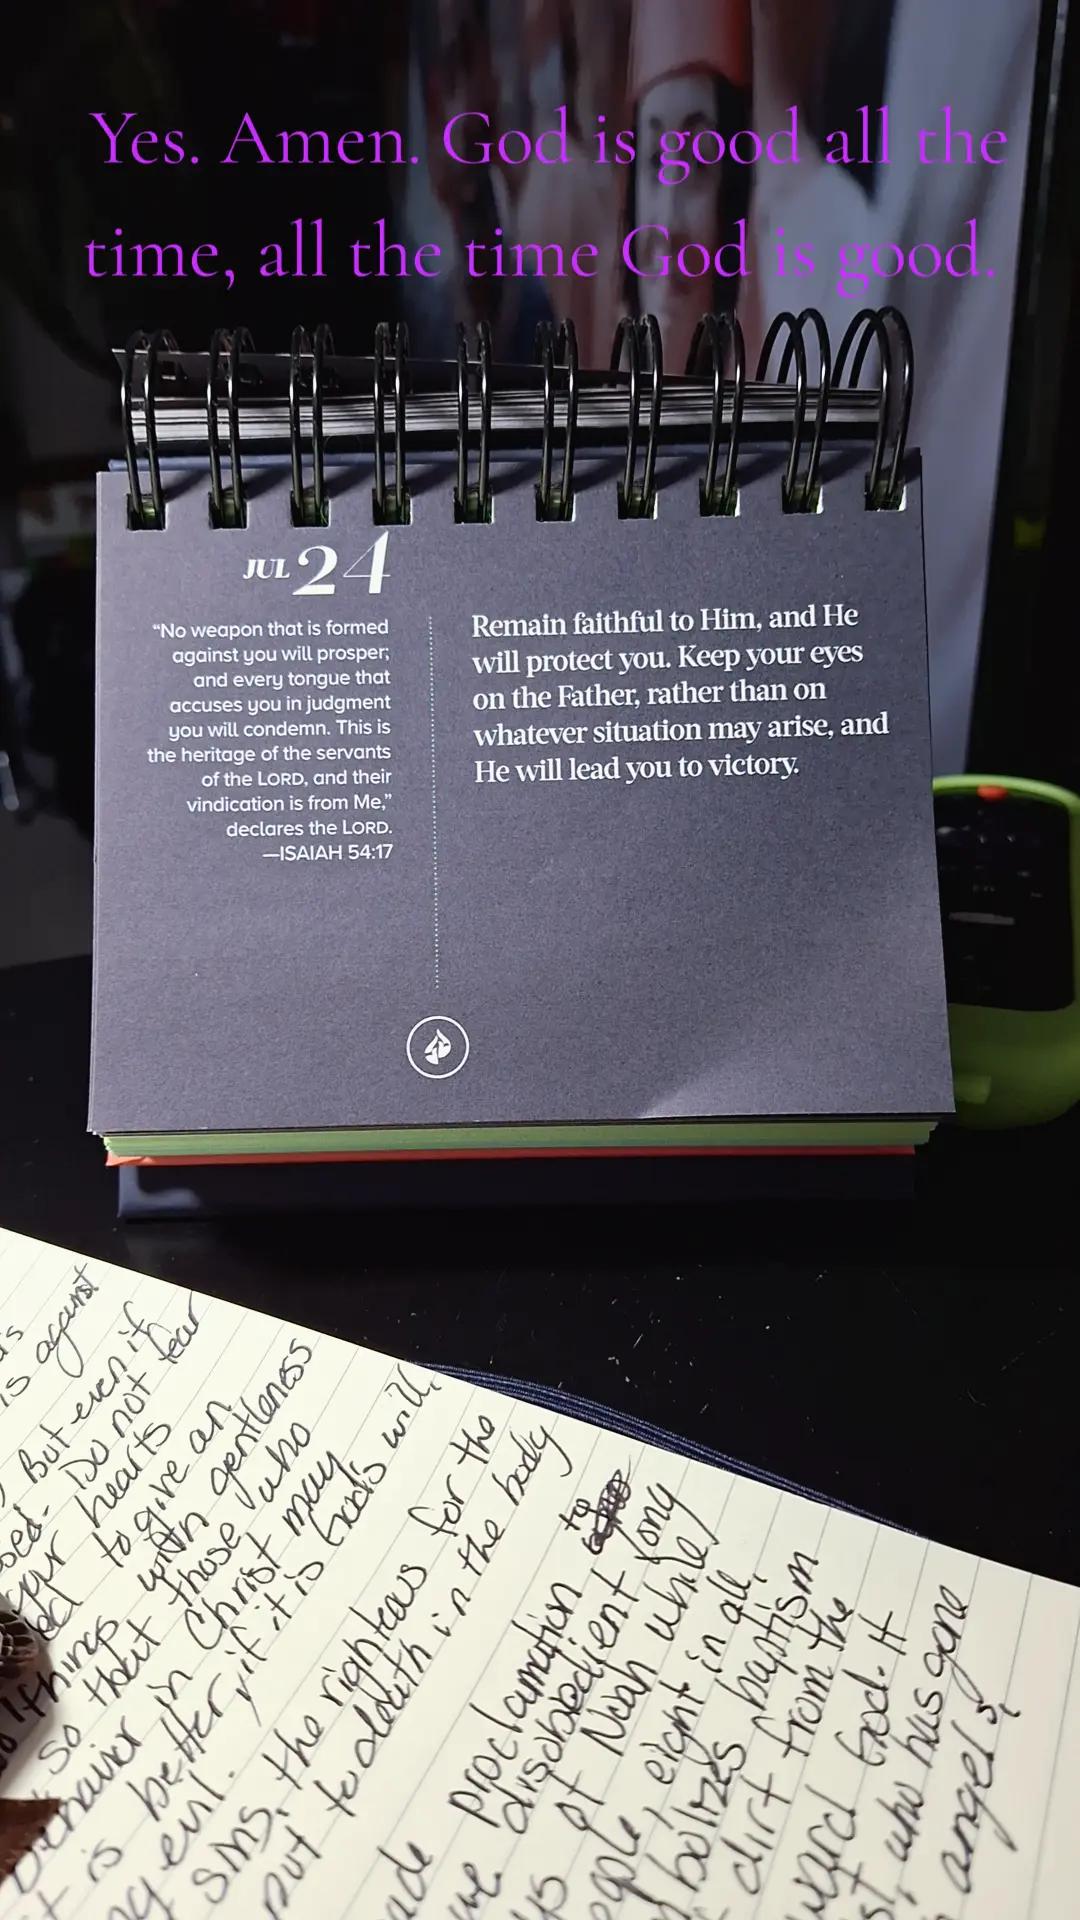 Yes. Amen. God is good all the
time, all the time God is good.
JUL 24
"No weapon that is formed
against you will prosper;
and every tongue that
accuses you in judgment
you will condemn. This is
the heritage of the servants
of the LORD, and their
vindication is from Me,"
declares the LORD.
—ISAIAH 54:17
Remain faithful to Him, and He
will protect you. Keep your eyes
on the Father, rather than on
whatever situation may arise, and
He will lead you to victory.
is against
But even if
Do not fear
your hearts
to give an
things with gentleness
so that those who
behavior in Christ may
is better, if it is God's will,
evil.
sins, the righteous for the
put to death in the body
proclamation to
disobedient long
of Noah while
people eight in all,
baptism
dirt from the
God. It
who has gone
angels,